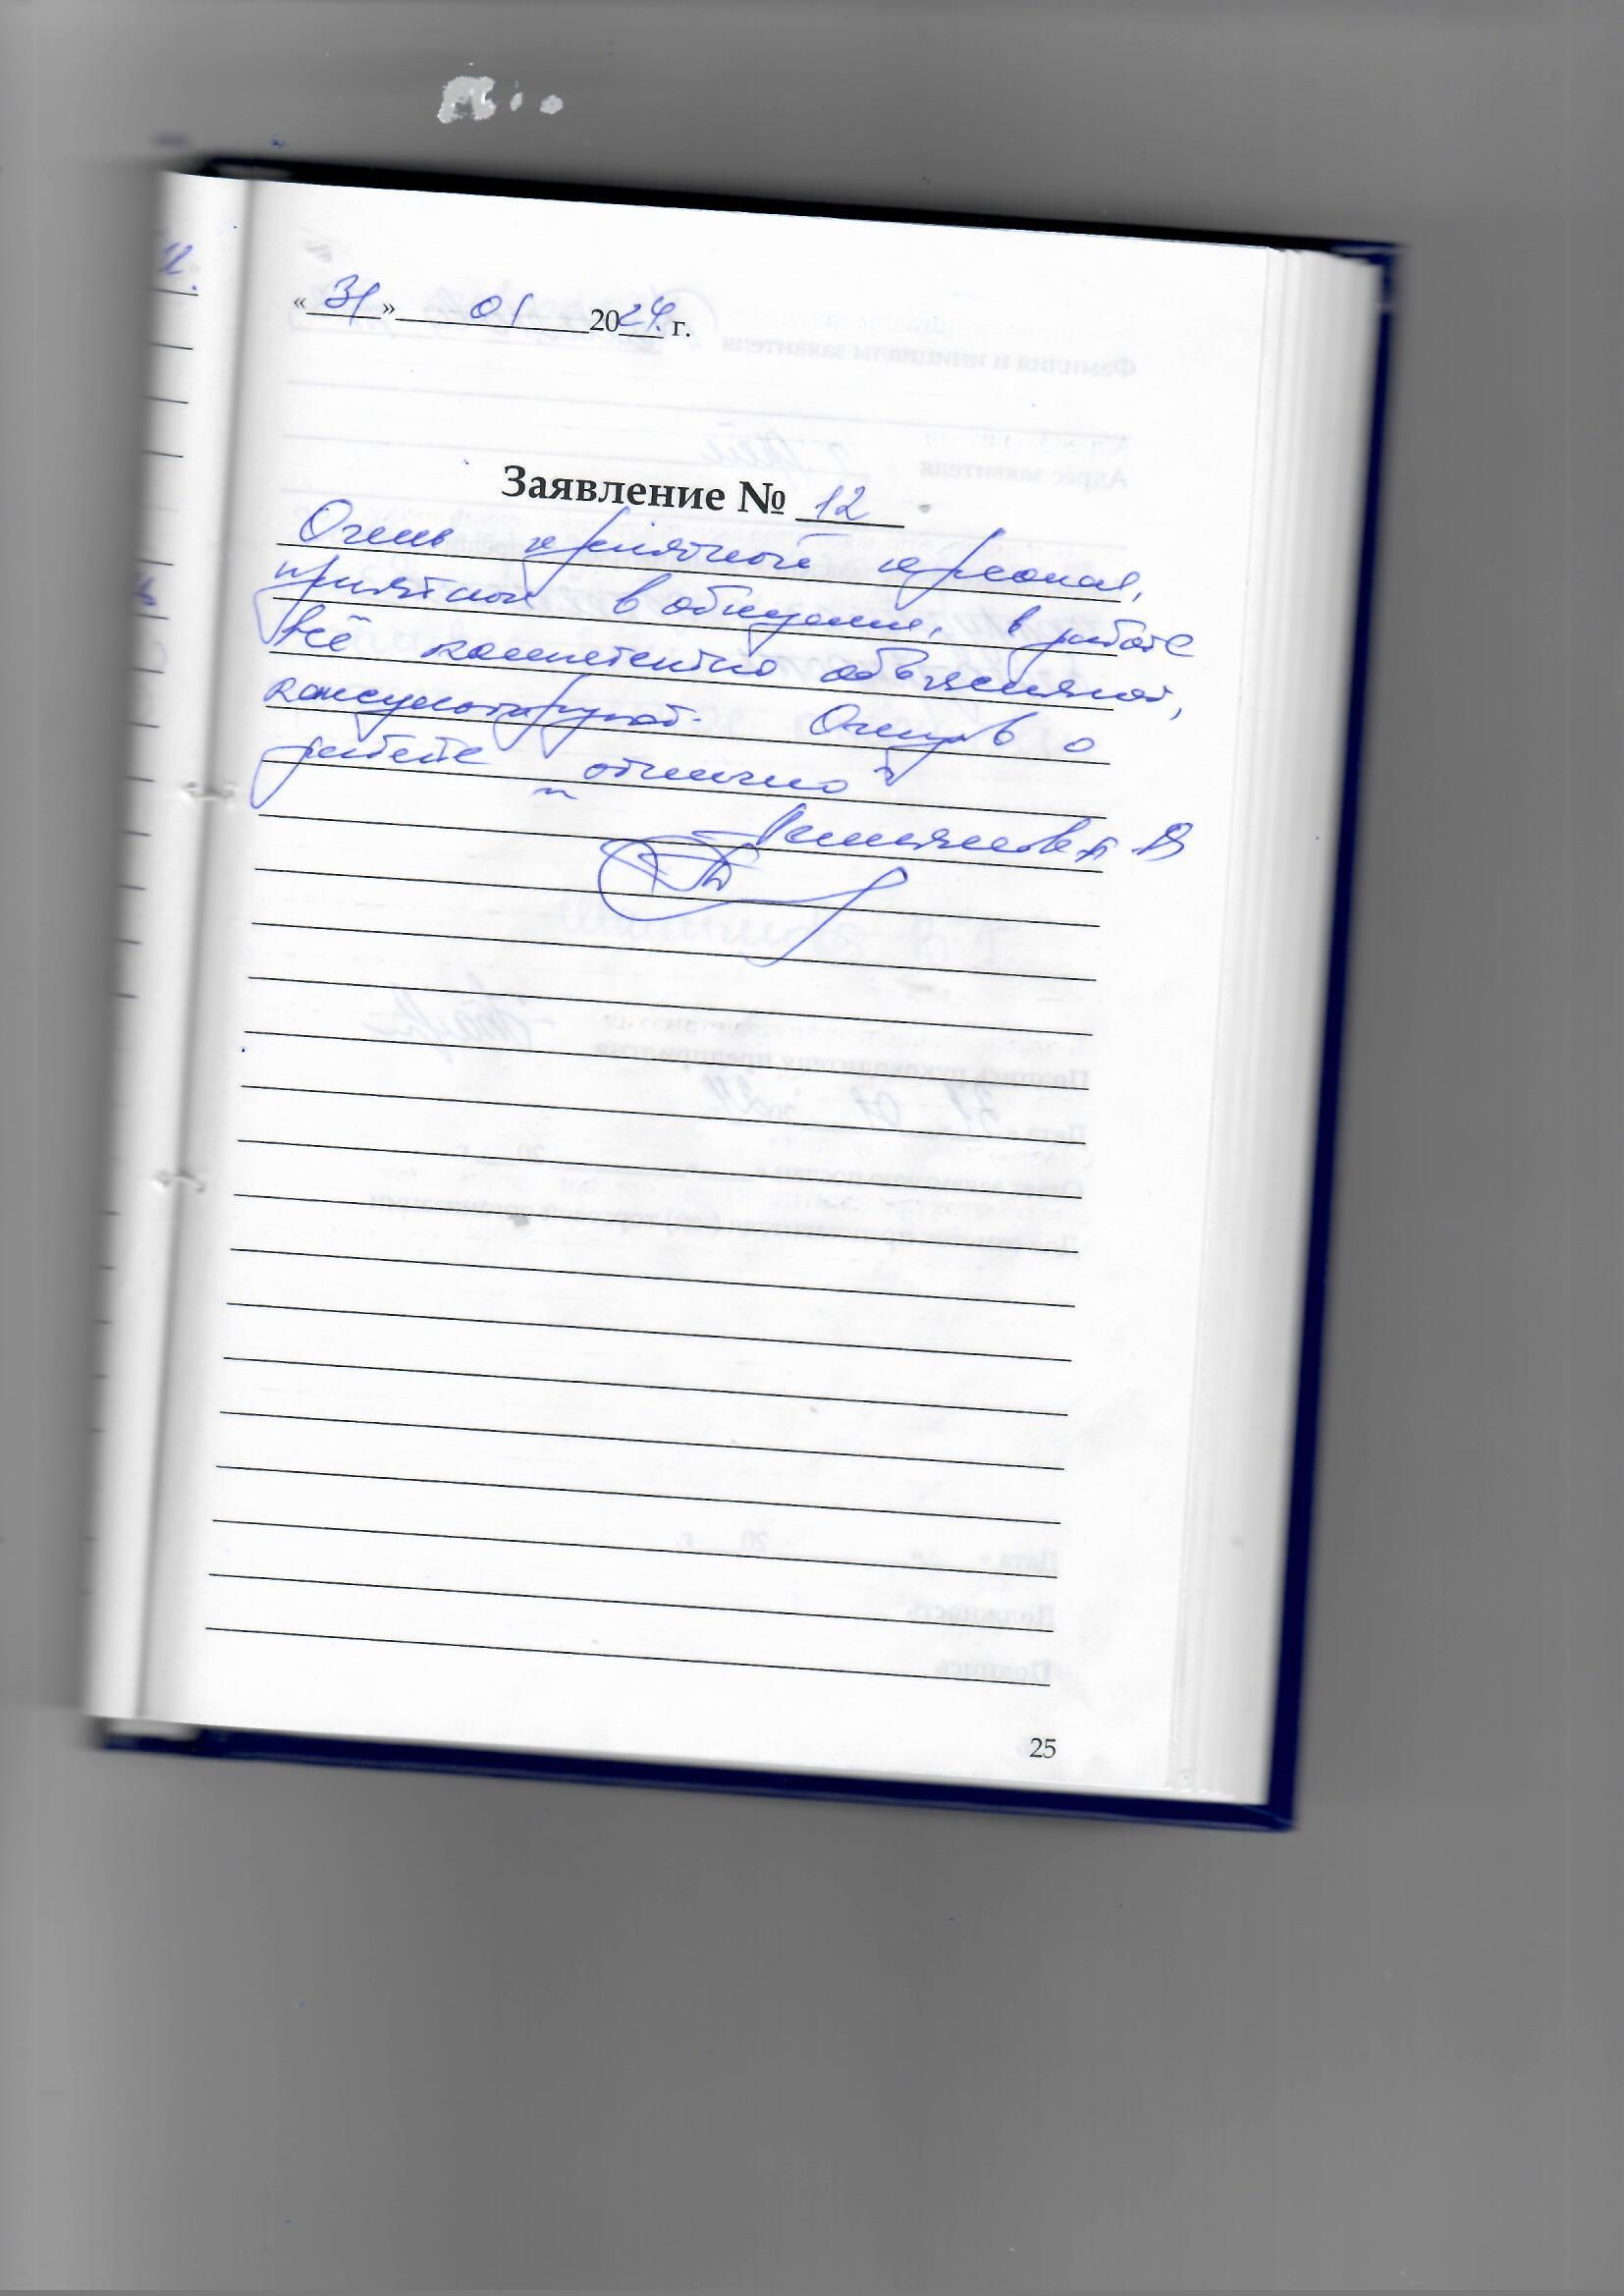 «31» 01 2024 г.
Заявление № 12
Очень приятный персонал,
приятный в общении, в работе
всё компетентно объясняют,
консультируют. Отзыв о
работе отлично
25